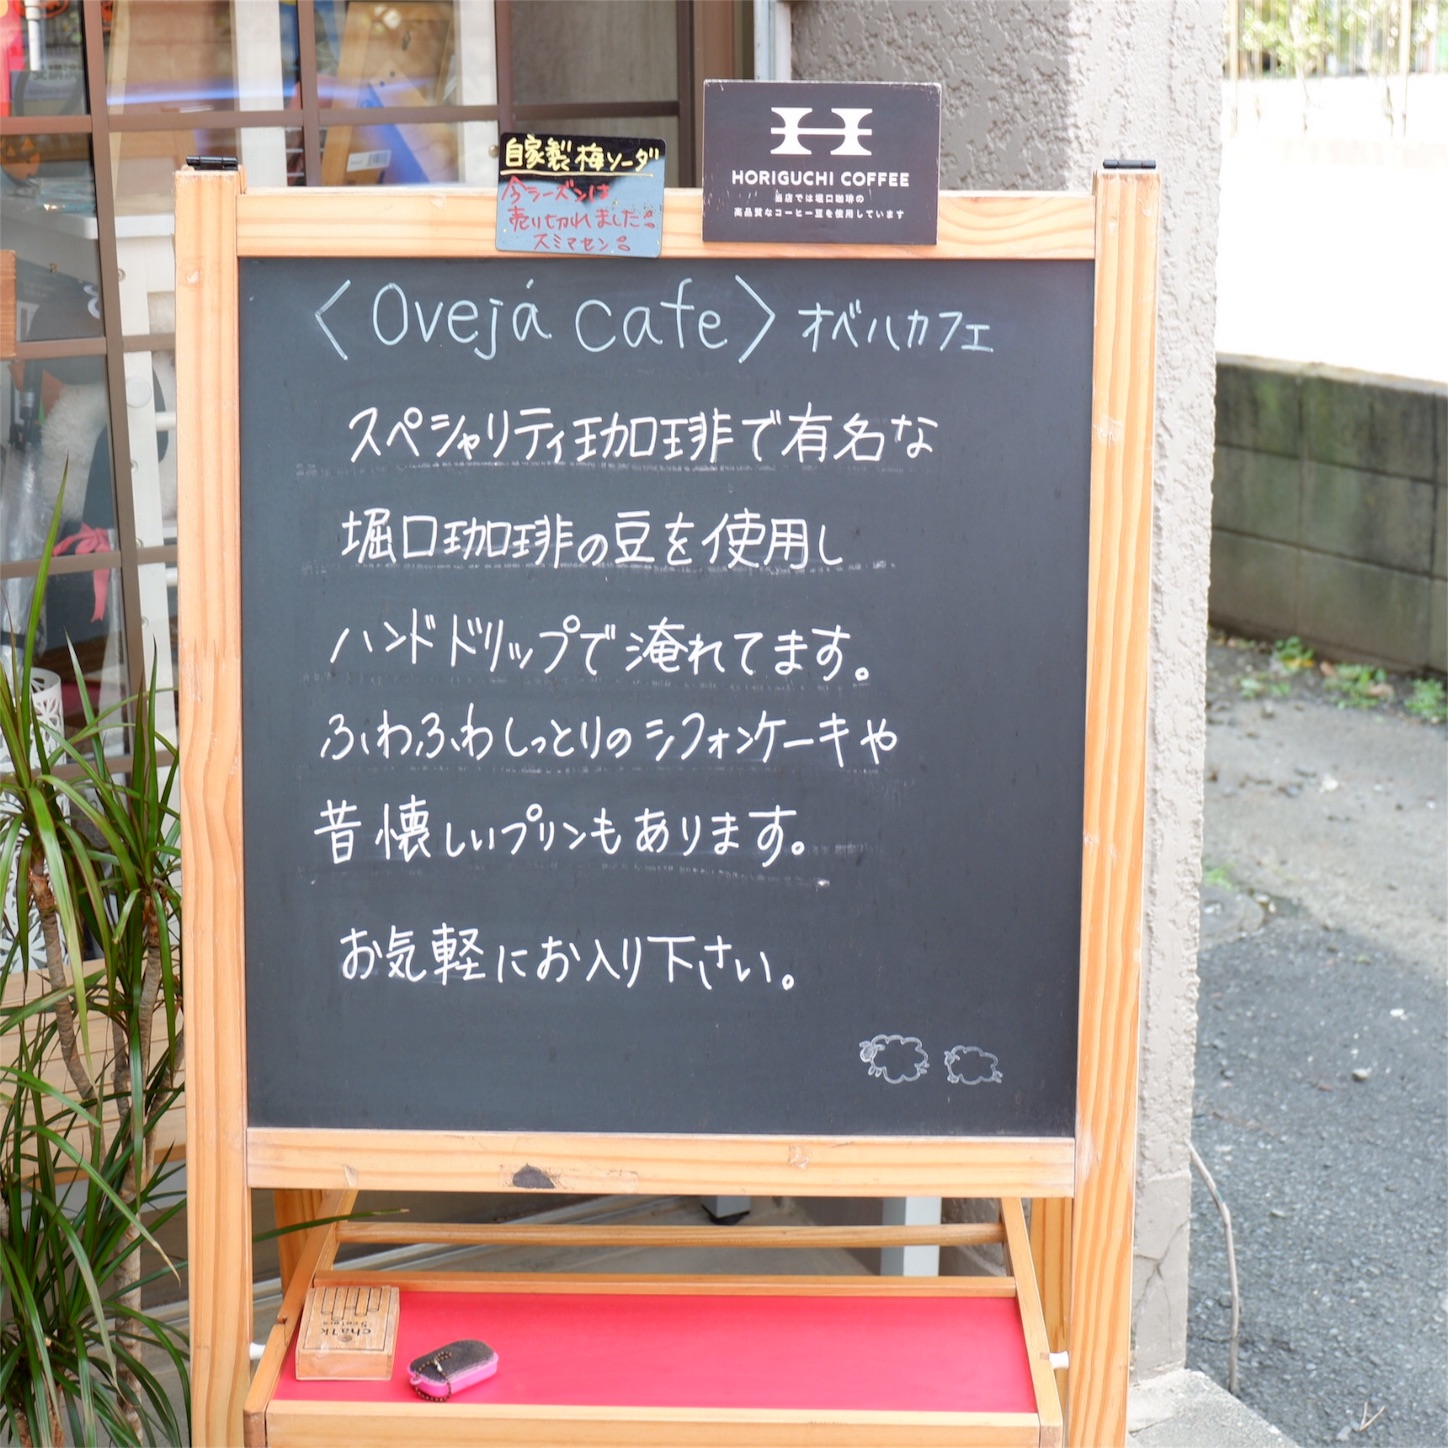 自家製梅ソーダ
今シーズンは
売り切れました
スミマセン
HORIGUCHI COFFEE
当店では堀口珈琲の
高品質なコーヒー豆を使用しています
〈Ovejá cafe〉オベハカフェ
スペシャリティ珈琲で有名な
堀口珈琲の豆を使用し
ハンドドリップで淹れてます。
ふわふわしっとりのシフォンケーキや
昔懐しいプリンもあります。
お気軽にお入り下さい。
chalk